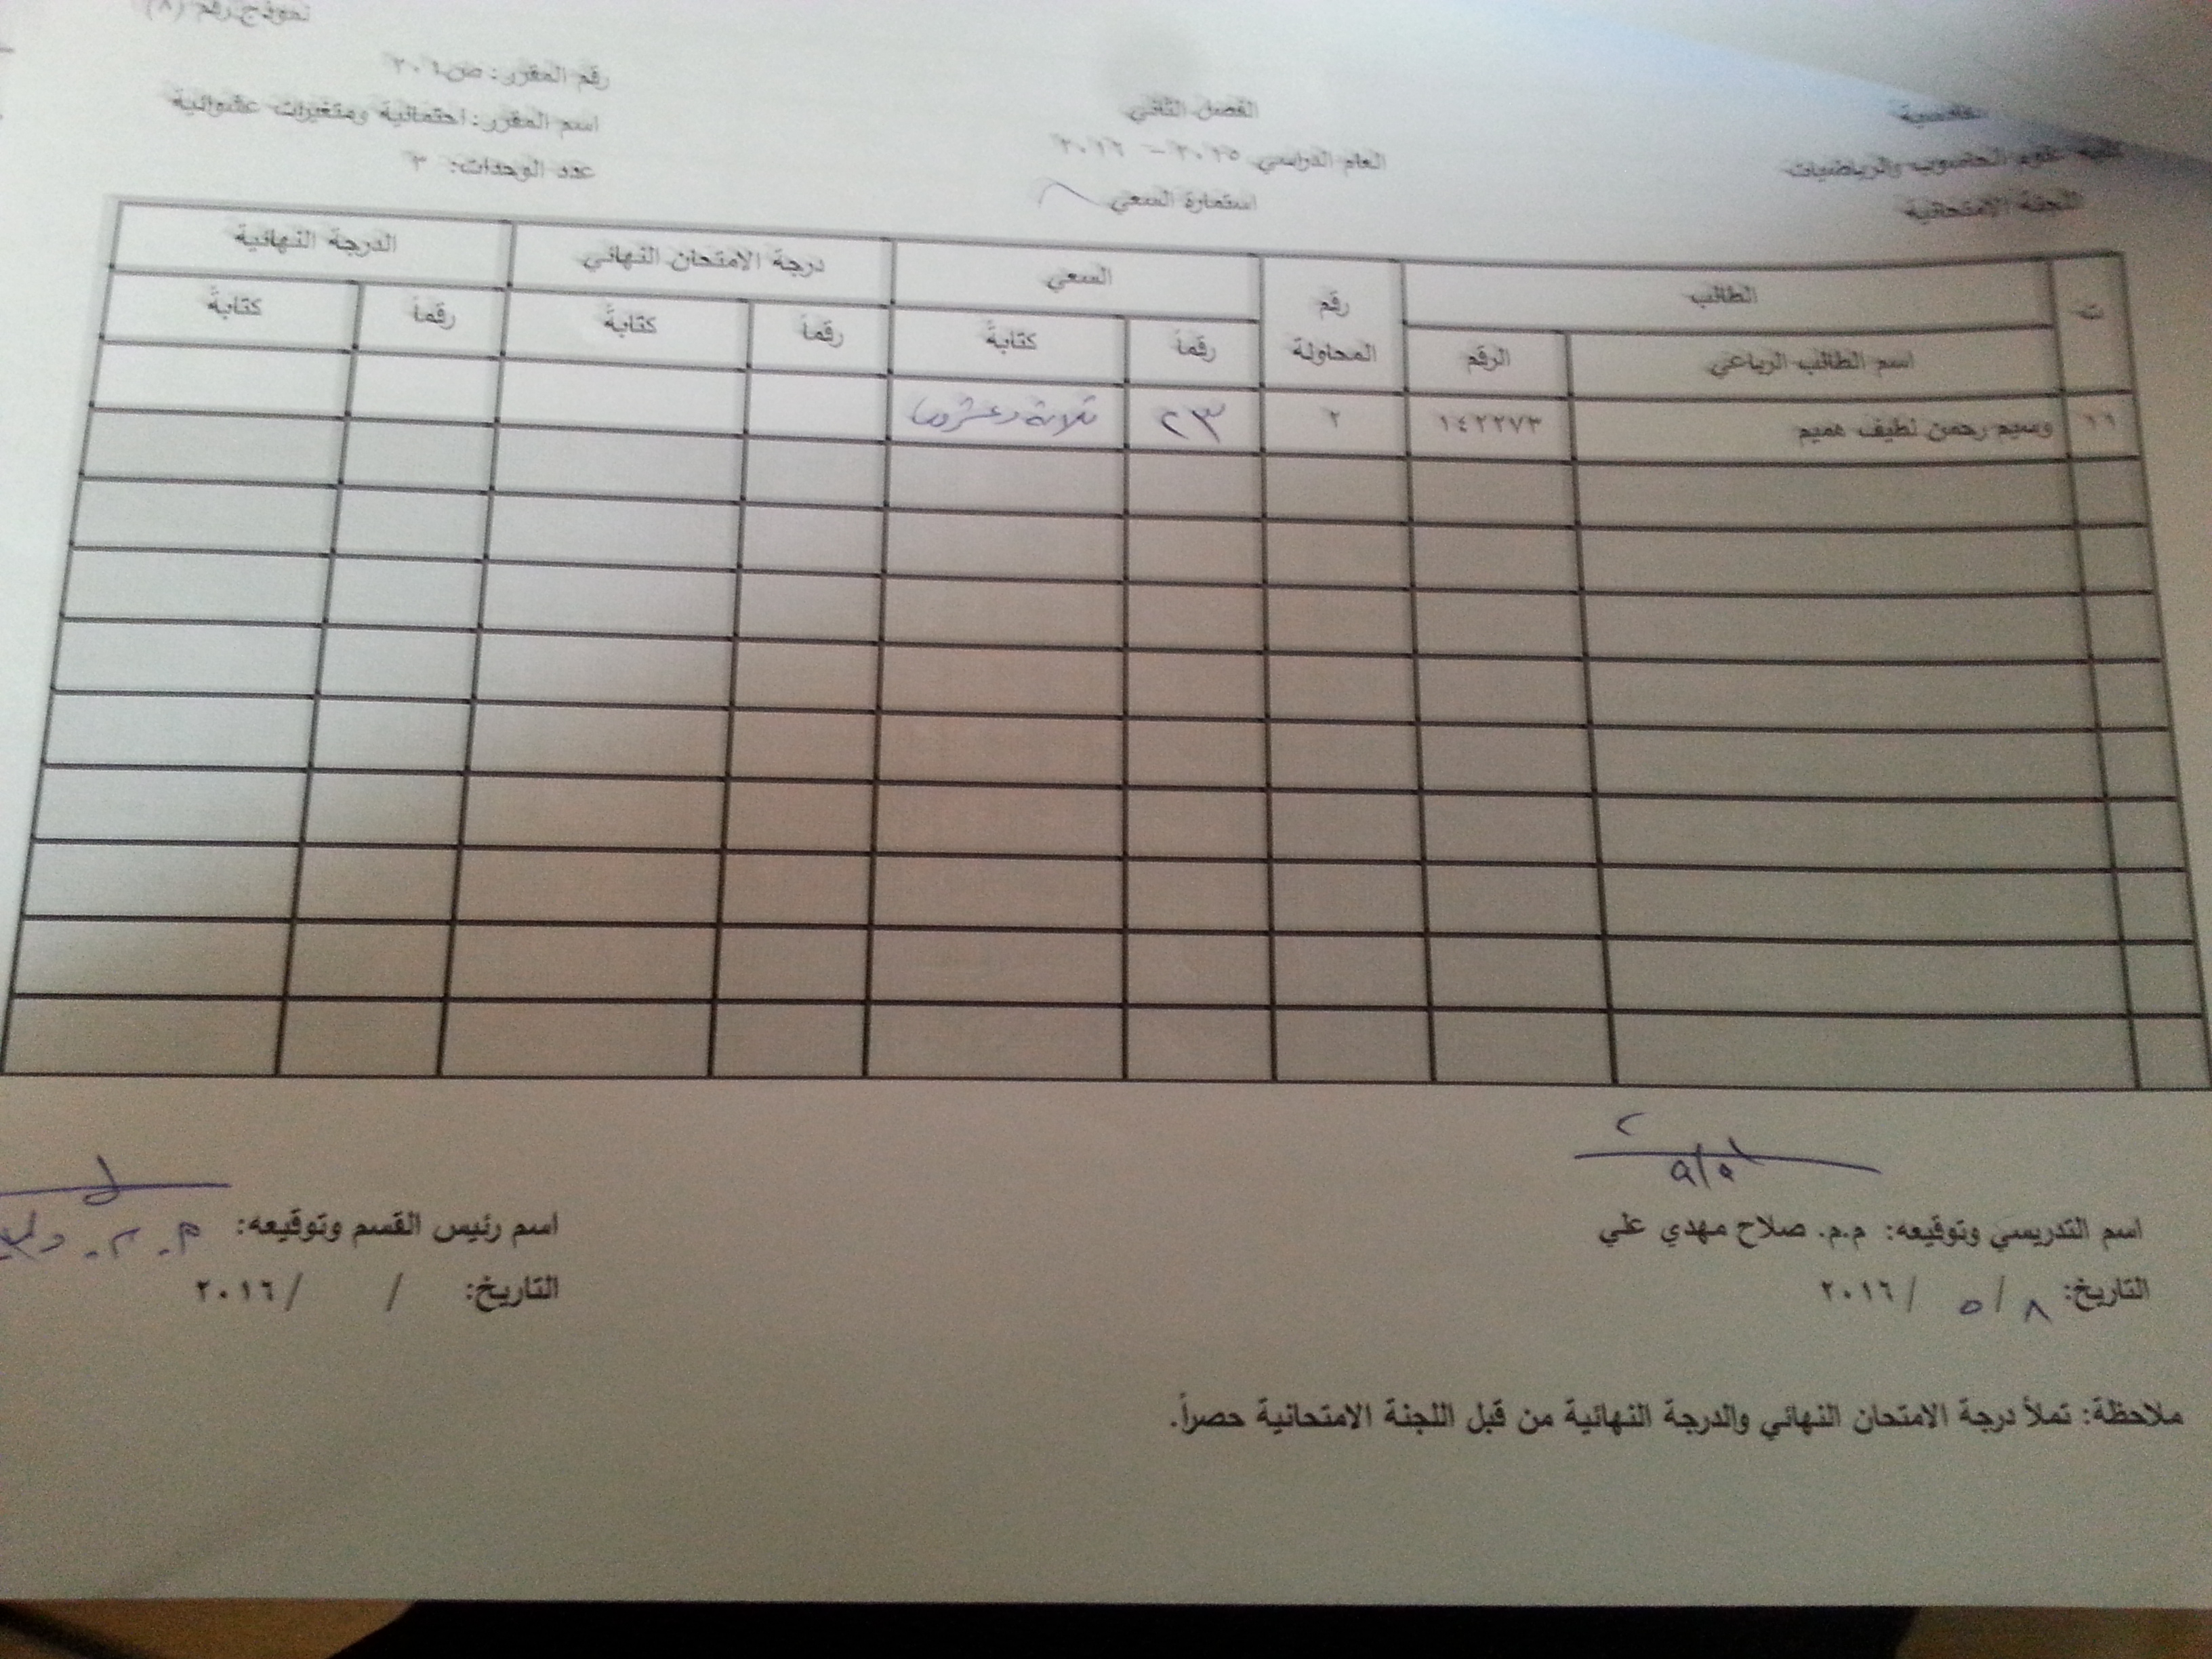 نموذج رقم (٨)
رقم المقرر: ص٢٠٦
القادسية
الفصل الثاني
اسم المقرر: احتمالية ومتغيرات عشوائية
كلية علوم الحاسوب والرياضيات
العام الدراسي ٢٠١٥ – ٢٠١٦
عدد الوحدات: ٣
اللجنة الامتحانية
استمارة السعي
ت الطالب رقم المحاولة السعي درجة الامتحان النهائي الدرجة النهائية
اسم الطالب الرباعي الرقم رقماً كتابةً رقماً كتابةً رقماً كتابةً
١٦ وسيم رحمن لطيف هميم ١٤٢٢٧٣ ٢ ٢٣ ثلاثة وعشرون
اسم التدريسي وتوقيعه: م.م. صلاح مهدي علي
اسم رئيس القسم وتوقيعه:
التاريخ: ٨ / ٥ / ٢٠١٦
التاريخ: / / ٢٠١٦
ملاحظة: تملأ درجة الامتحان النهائي والدرجة النهائية من قبل اللجنة الامتحانية حصراً.